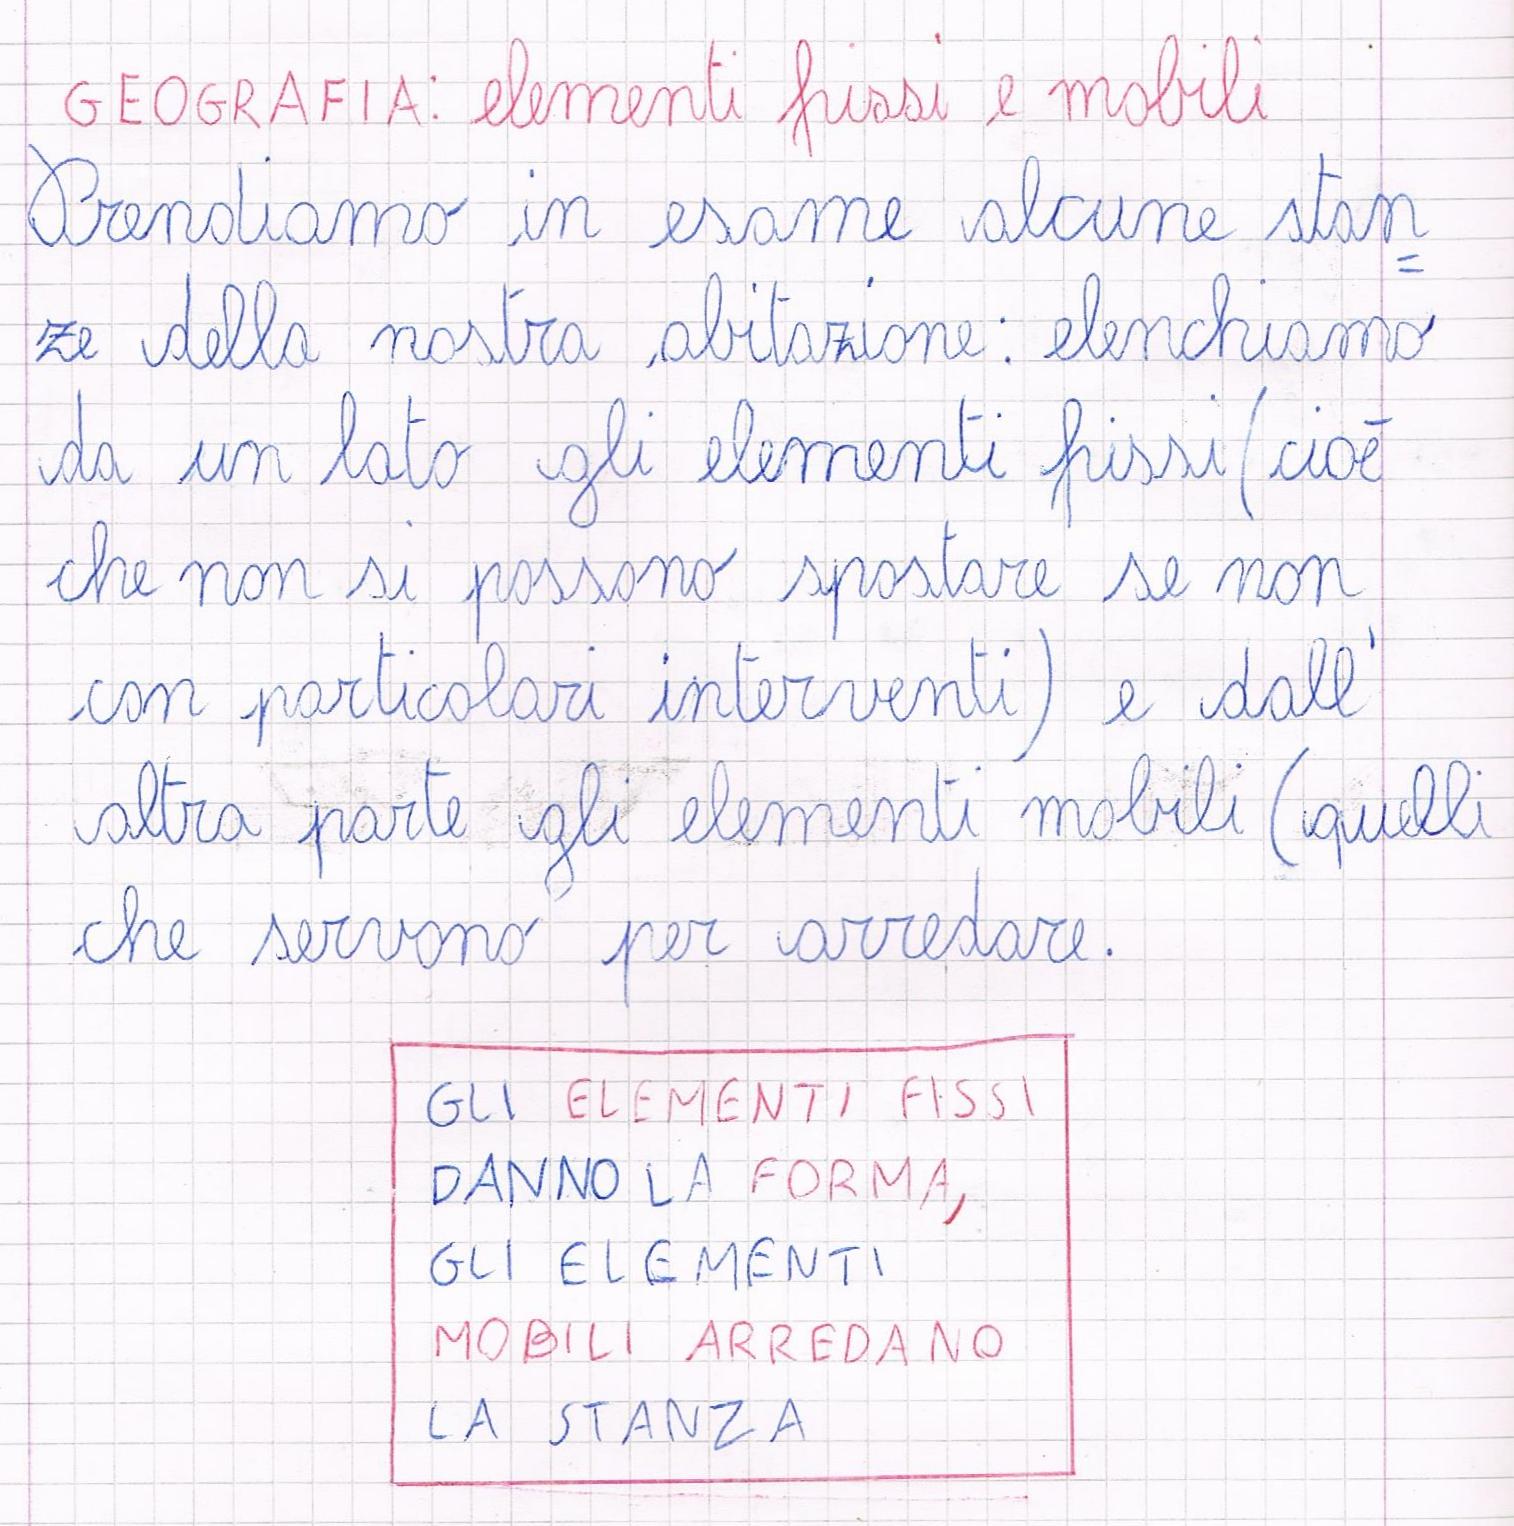 GEOGRAFIA: elementi fissi e mobili
Prendiamo in esame alcune stan=
ze della nostra abitazione: elenchiamo
da un lato gli elementi fissi (cioè
che non si possono spostare se non
con particolari interventi) e dall'
altra parte gli elementi mobili (quelli
che servono per arredare.
GLI ELEMENTI FISSI
DANNO LA FORMA,
GLI ELEMENTI
MOBILI ARREDANO
LA STANZA